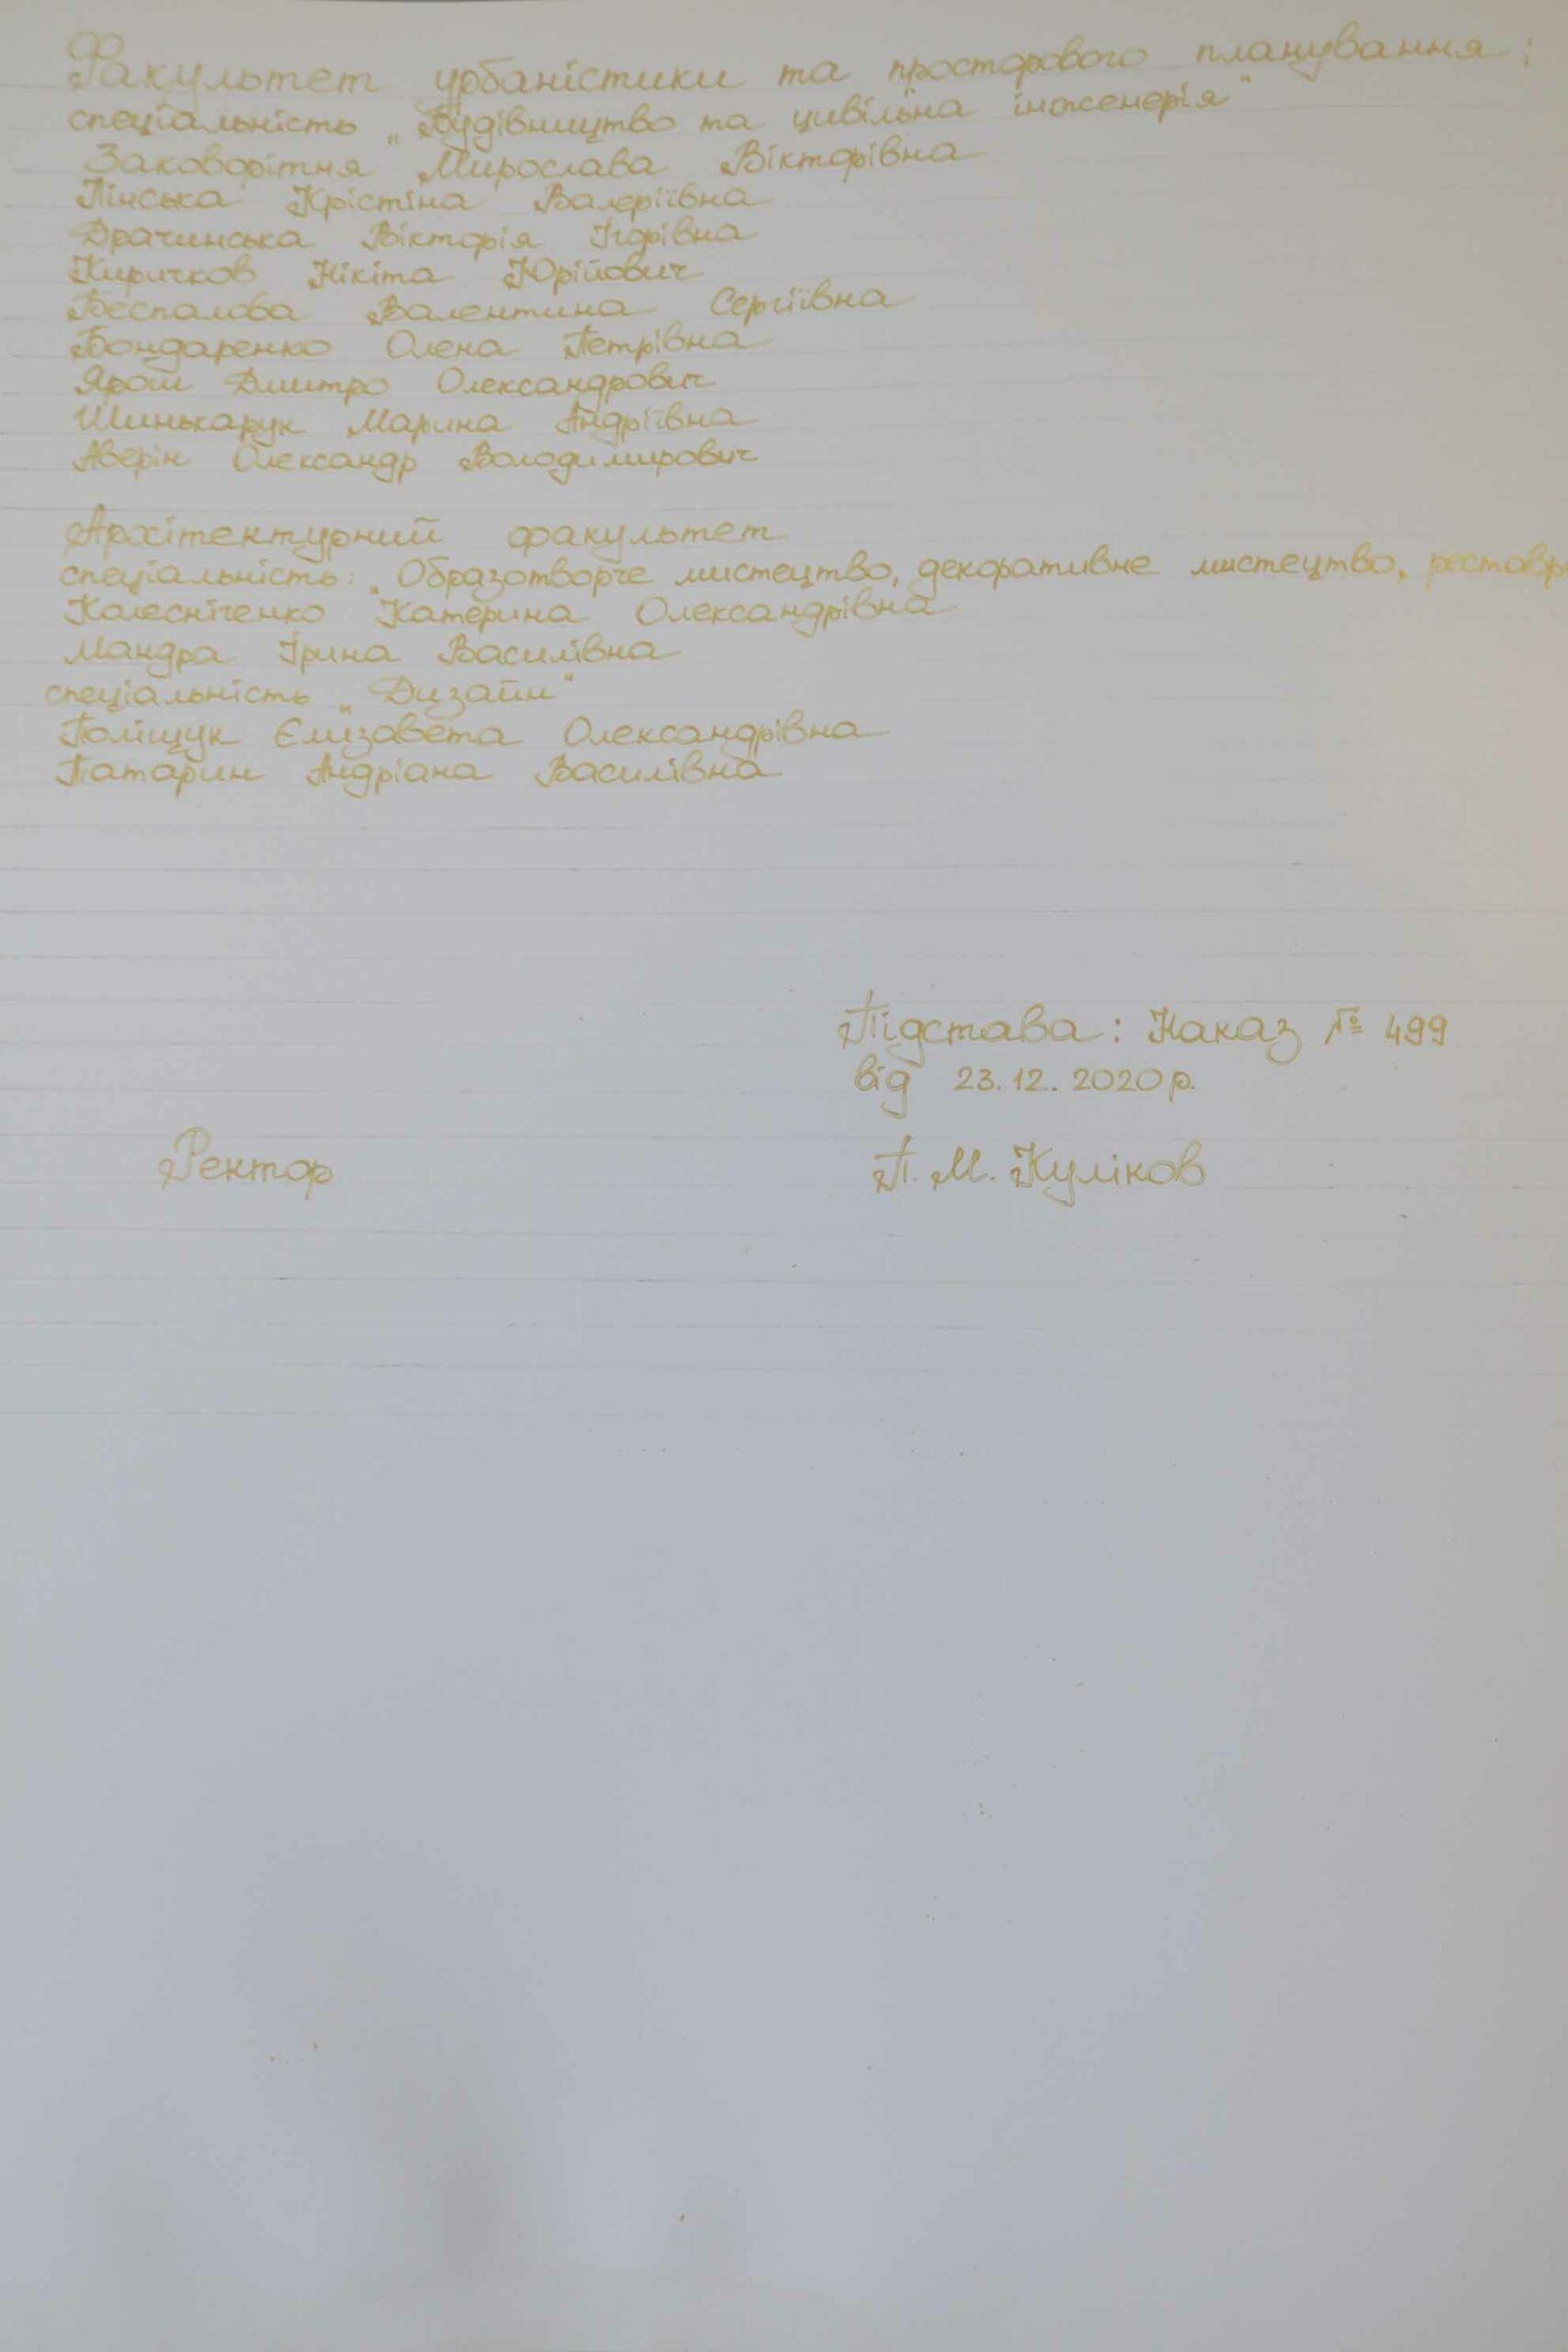 Факультет урбаністики та просторового планування:
спеціальність „Будівництво та цивільна інженерія"
Заковорітня Мирослава Вікторівна
Пінська Крістіна Валеріївна
Драчинська Вікторія Ігорівна
Киричков Нікіта Юрійович
Беспалова Валентина Сергіївна
Бондаренко Олена Петрівна
Ярош Дмитро Олександрович
Шинькарук Марина Андріївна
Аверін Олександр Володимирович
Архітектурний факультет
спеціальність: „Образотворче мистецтво, декоративне мистецтво, реставр
Колесніченко Катерина Олександрівна
Мандра Ірина Василівна
спеціальність „Дизайн"
Поліщук Єлізавета Олександрівна
Патарин Андріана Василівна
Підстава: Наказ № 499
від 23.12.2020р.
Ректор П. М. Куліков